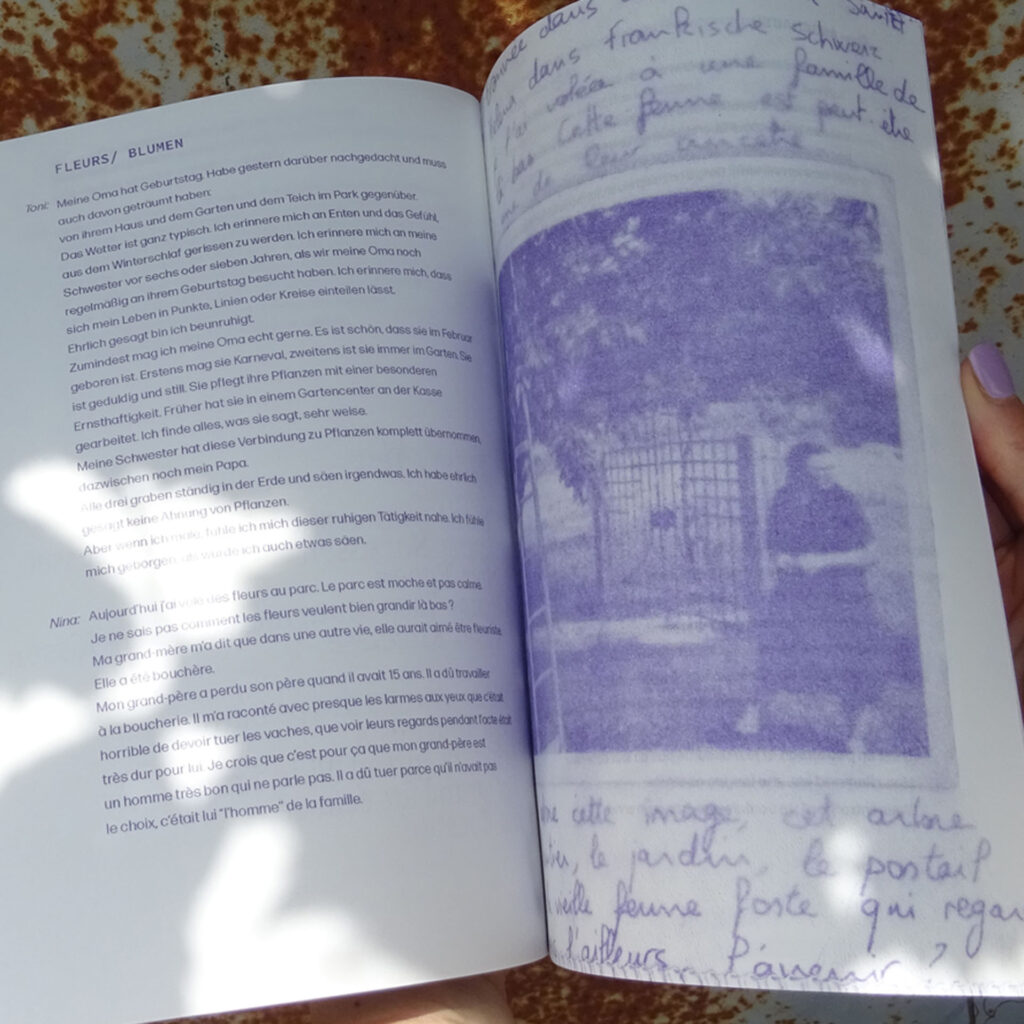 FLEURS/ BLUMEN
Toni: Meine Oma hat Geburtstag. Habe gestern darüber nachgedacht und muss
auch davon geträumt haben:
von ihrem Haus und dem Garten und dem Teich im Park gegenüber.
Das Wetter ist ganz typisch. Ich erinnere mich an Enten und das Gefühl,
aus dem Winterschlaf gerissen zu werden. Ich erinnere mich an meine
Schwester vor sechs oder sieben Jahren, als wir meine Oma noch
regelmäßig an ihrem Geburtstag besucht haben. Ich erinnere mich, dass
sich mein Leben in Punkte, Linien oder Kreise einteilen lässt.
Ehrlich gesagt bin ich beunruhigt.
Zumindest mag ich meine Oma echt gerne. Es ist schön, dass sie im Februar
geboren ist. Erstens mag sie Karneval, zweitens ist sie immer im Garten. Sie
ist geduldig und still. Sie pflegt ihre Pflanzen mit einer besonderen
Ernsthaftigkeit. Früher hat sie in einem Gartencenter an der Kasse
gearbeitet. Ich finde alles, was sie sagt, sehr weise.
Meine Schwester hat diese Verbindung zu Pflanzen komplett übernommen,
dazwischen noch mein Papa.
Alle drei graben ständig in der Erde und säen irgendwas. Ich habe ehrlich
gesagt keine Ahnung von Pflanzen.
Aber wenn ich male, fühle ich mich dieser ruhigen Tätigkeit nahe. Ich fühle
mich geborgen, als würde ich auch etwas säen.
Nina: Aujourd'hui j'ai volé des fleurs au parc. Le parc est moche et pas calme.
Je ne sais pas comment les fleurs veulent bien grandir là bas ?
Ma grand-mère m'a dit que dans une autre vie, elle aurait aimé être fleuriste.
Elle a été bouchère.
Mon grand-père a perdu son père quand il avait 15 ans. Il a dû travailler
à la boucherie. Il m'a raconté avec presque les larmes aux yeux que c'était
horrible de devoir tuer les vaches, que voir leurs regards pendant l'acte était
très dur pour lui. Je crois que c'est pour ça que mon grand-père est
un homme très bon qui ne parle pas. Il a dû tuer parce qu'il n'avait pas
le choix, c'était lui "l'homme" de la famille.
dans
dans frankische schweiz
j'ai volée à une famille de
bas Cette femme est peut être
de leur
cette image, cet arbre
le jardin, le portail
vieille femme forte qui regar
l'ailleurs. L'avenir ?